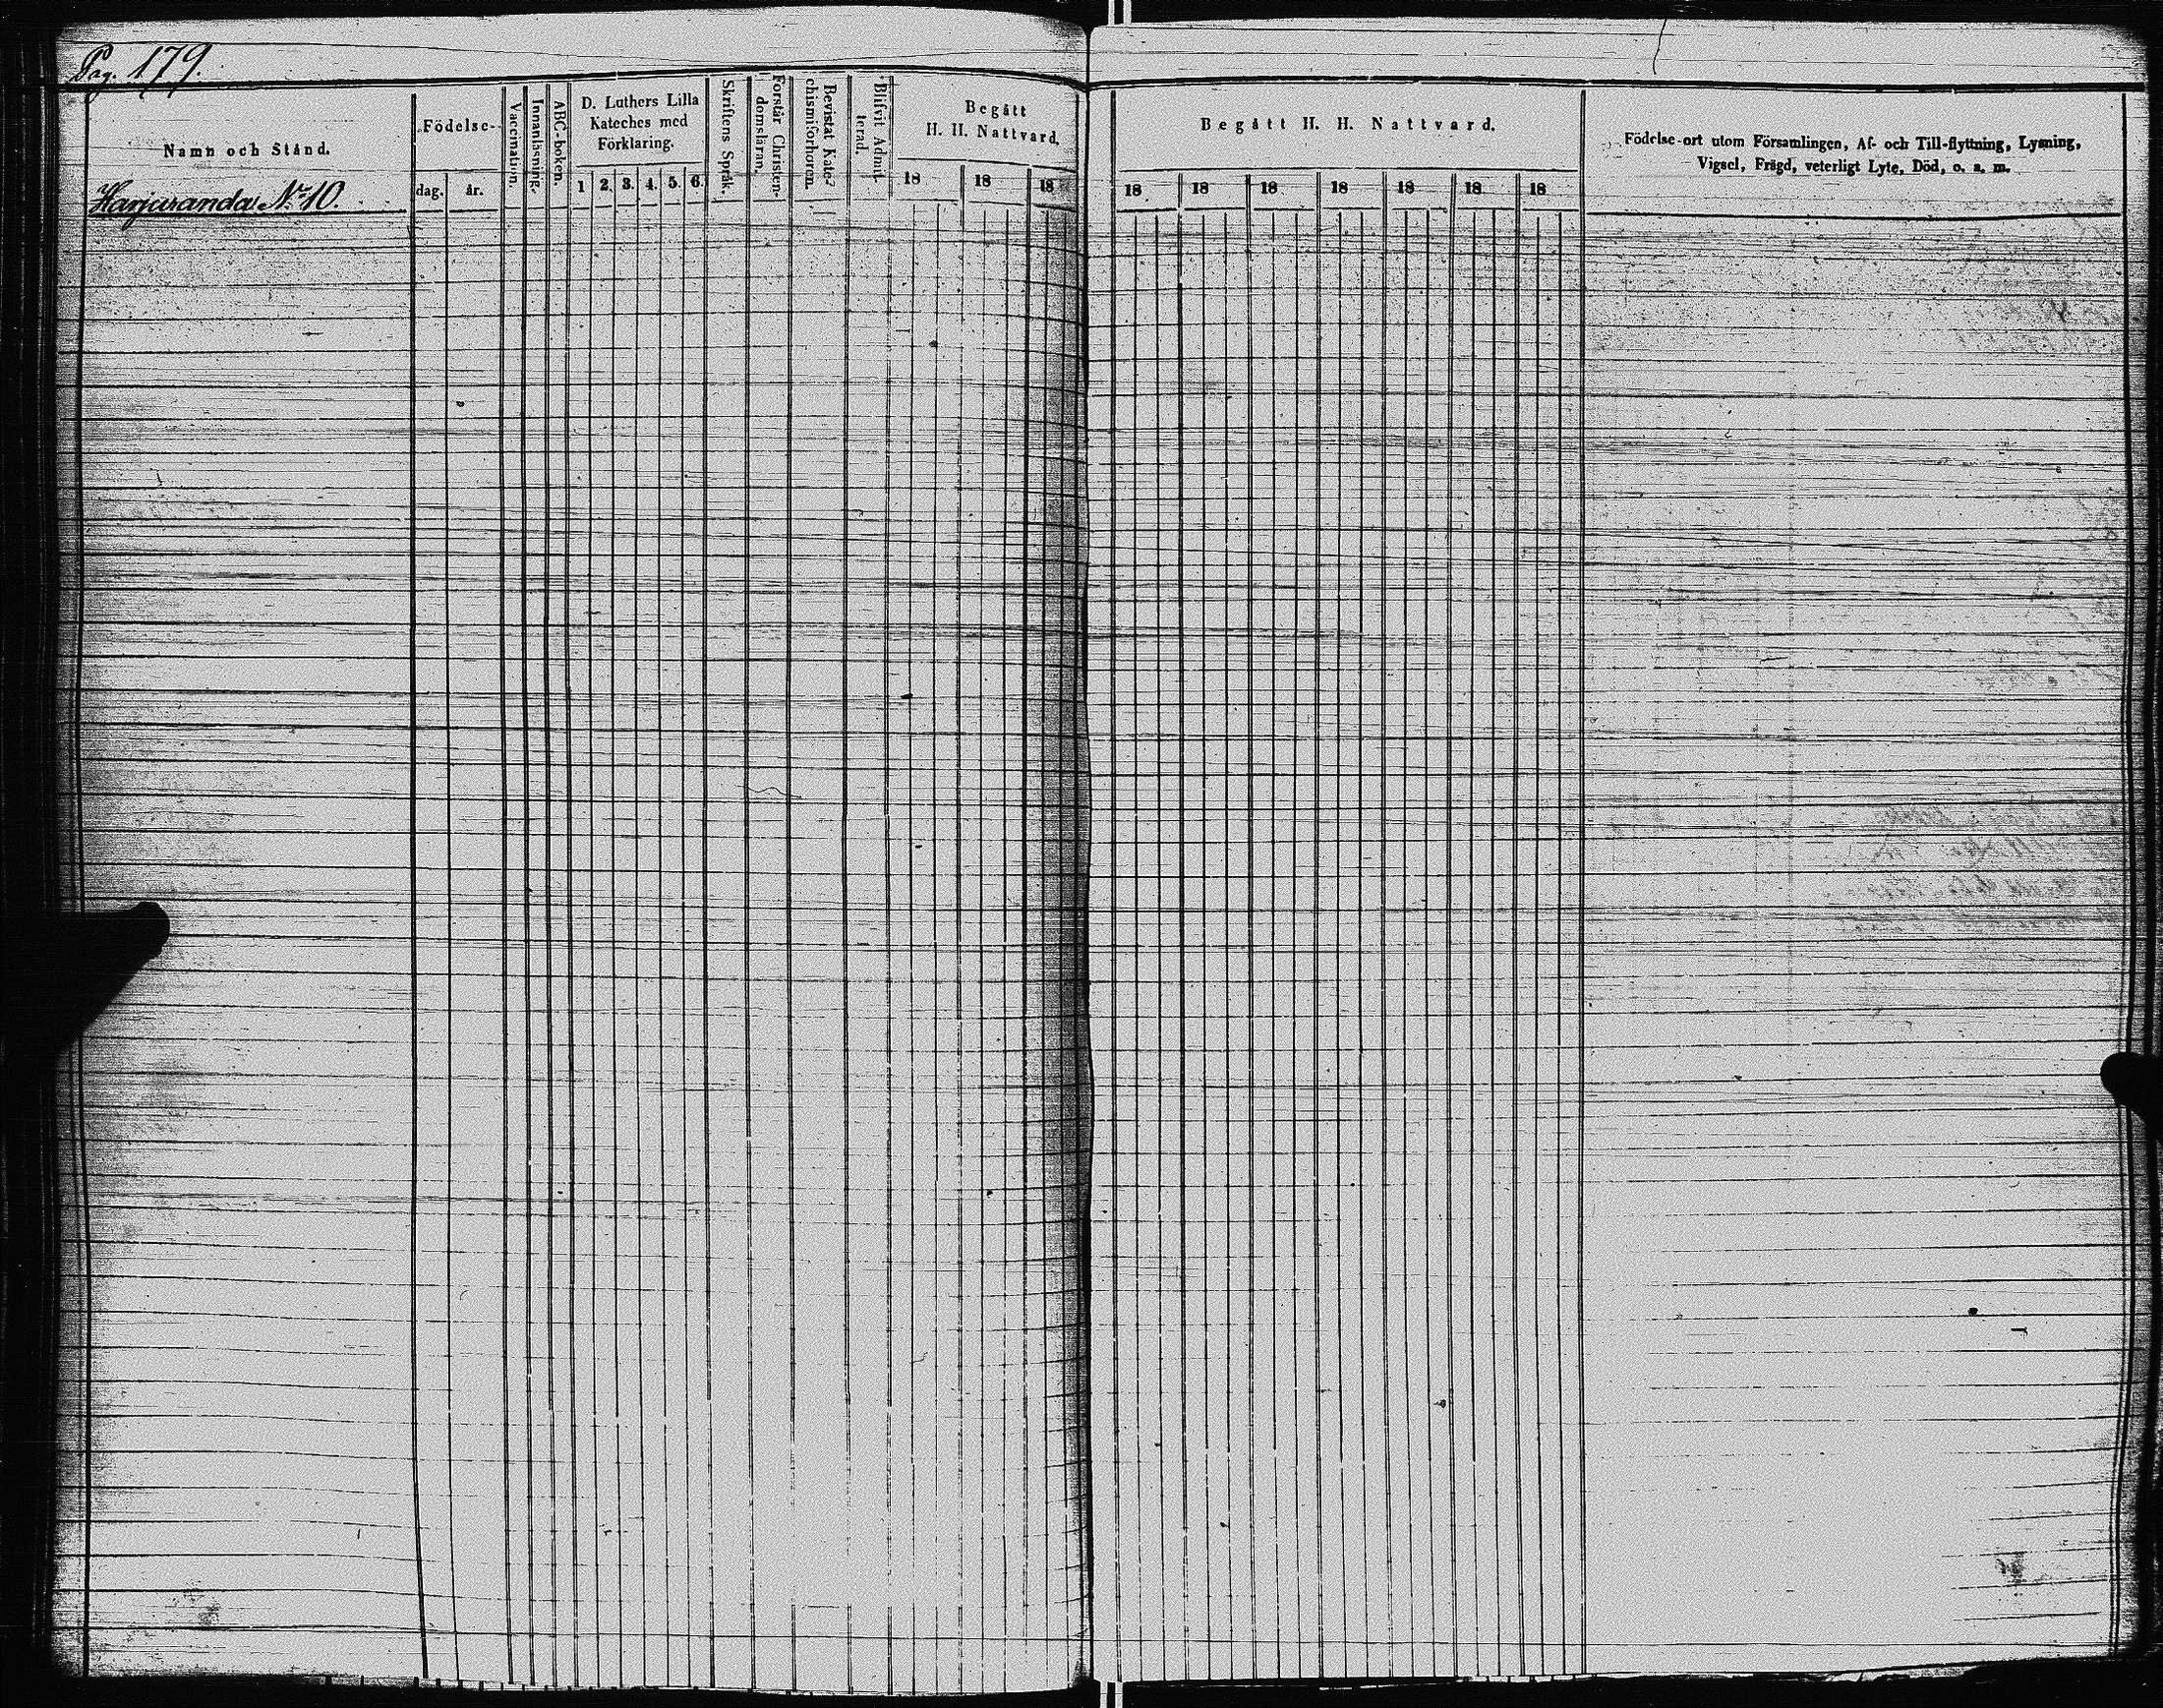 Pag. 179.
Namn och Stånd.
Harjuranda No 10.
Födelse-
dag. år.
Vaccination.
Innanläsning.
ABC-boken.
D. Luthers Lilla
Kateches med
Förklaring.
1 2. 3. 4. 5. 6.
Skriftens Språk.
Förstår Christen-
domsläran.
Bevistat Kate-
chismiförhören.
Blifvit Admit-
terad.
Begått
H. H. Nattvard.
18 18 18
Begått H. H. Nattvard.
18 18 18 18 18 18 18
Födelse-ort utom Församlingen, Af- och Till-flyttning, Lysning,
Vigsel, Frägd, veterligt Lyte, Död, o. s. m.